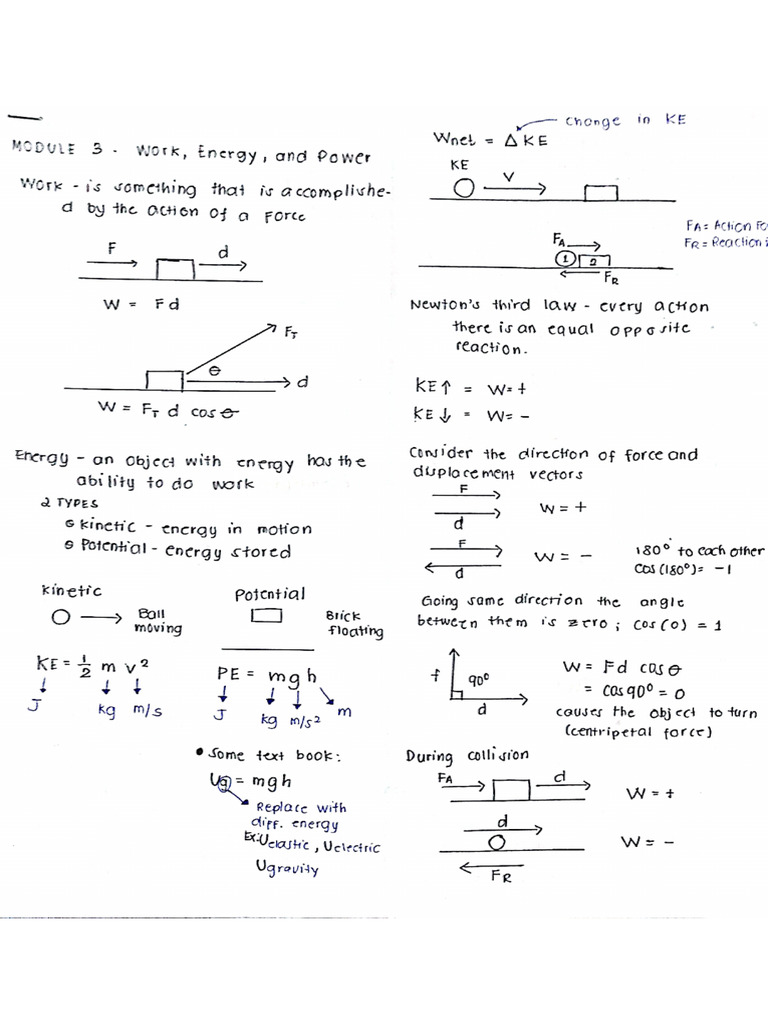 MODULE 3 - Work, Energy, and Power
Work - is something that is accomplishe-
d by the action of a Force
F
d
W = Fd
F_T
θ
d
W = F_T d cosθ
Energy - an object with energy has the
ability to do work
2 TYPES
kinetic - energy in motion
Potential - energy stored
kinetic
Ball
moving
KE = 1/2 m v²
J kg m/s
Potential
Brick
floating
PE = mgh
J kg m/s² m
• Some text book:
Ug = mgh
Replace with
diff. energy
Ex: Uelastic, Uelectric
Ugravity
change in KE
Wnet = Δ KE
KE
V
FA = Action Fo
FR = Reaction
FA
1 2
FR
Newton's third law - every action
there is an equal opposite
reaction.
KE↑ = W= +
KE↓ = W= -
Consider the direction of force and
displacement vectors
F
d
W = +
F
d
W = -
180° to each other
cos(180°) = -1
Going same direction the angle
between them is zero; cos(0) = 1
f
90°
d
W = Fd cosθ
= cos90° = 0
causes the object to turn
(centripetal force)
During collision
FA
d
W = +
d
W = -
FR